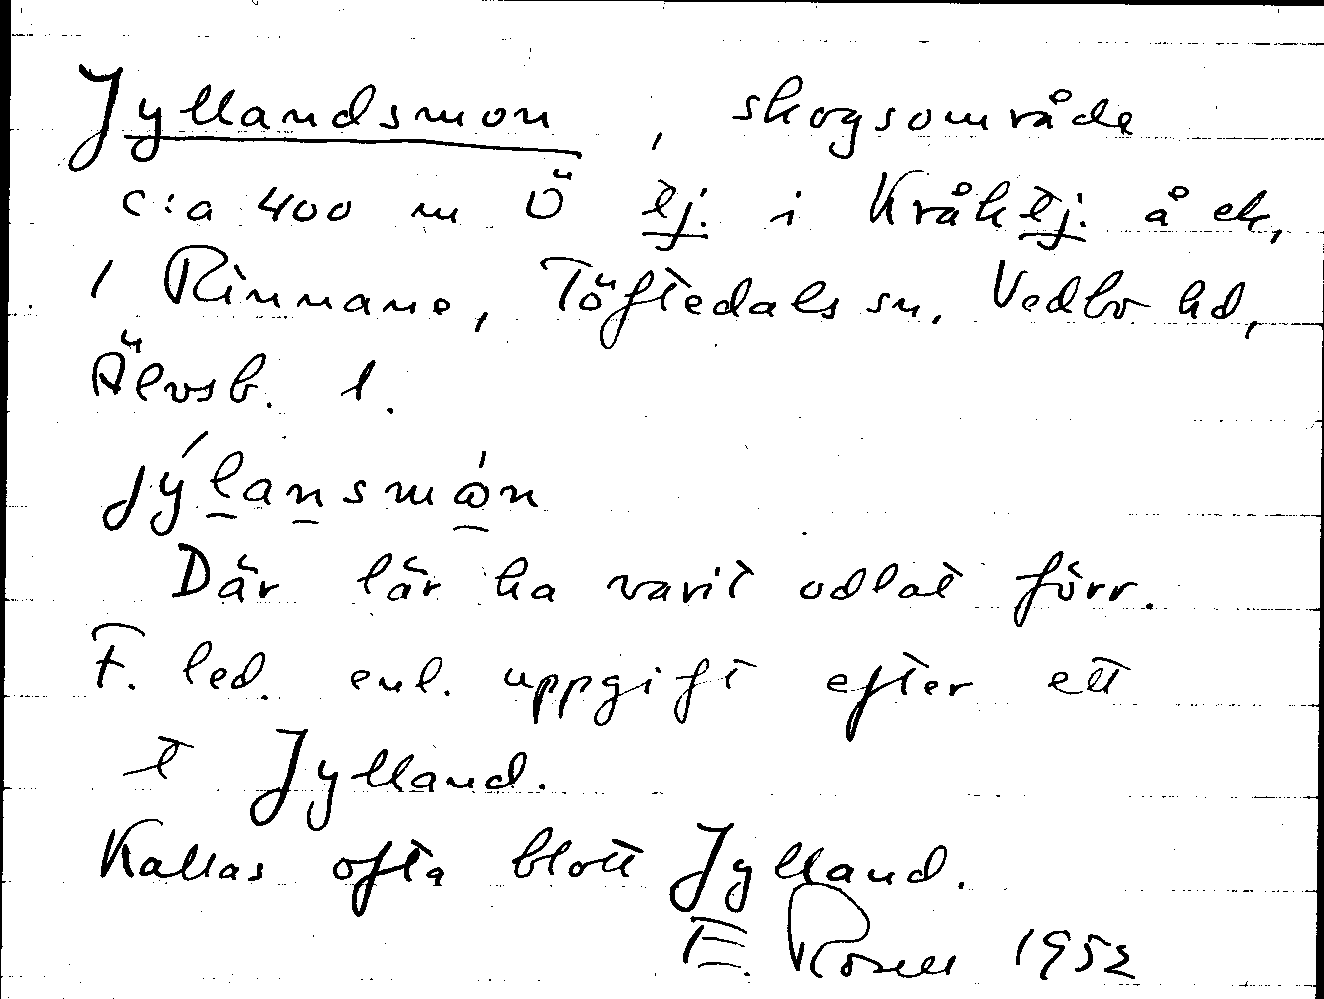 Jyllandsmon, skogsområde
c:a 400 m Ö tj. i Kråktj. å ek,
1 Rinnane, Töftedals sn. Vedbo hd,
Älvsb. l.
jýlansmòn
Där lär ha varit odlat förr.
F. led. enl. uppgift efter ett
t Jylland.
Kallas ofta blott Jylland.
E. Rosell 1952